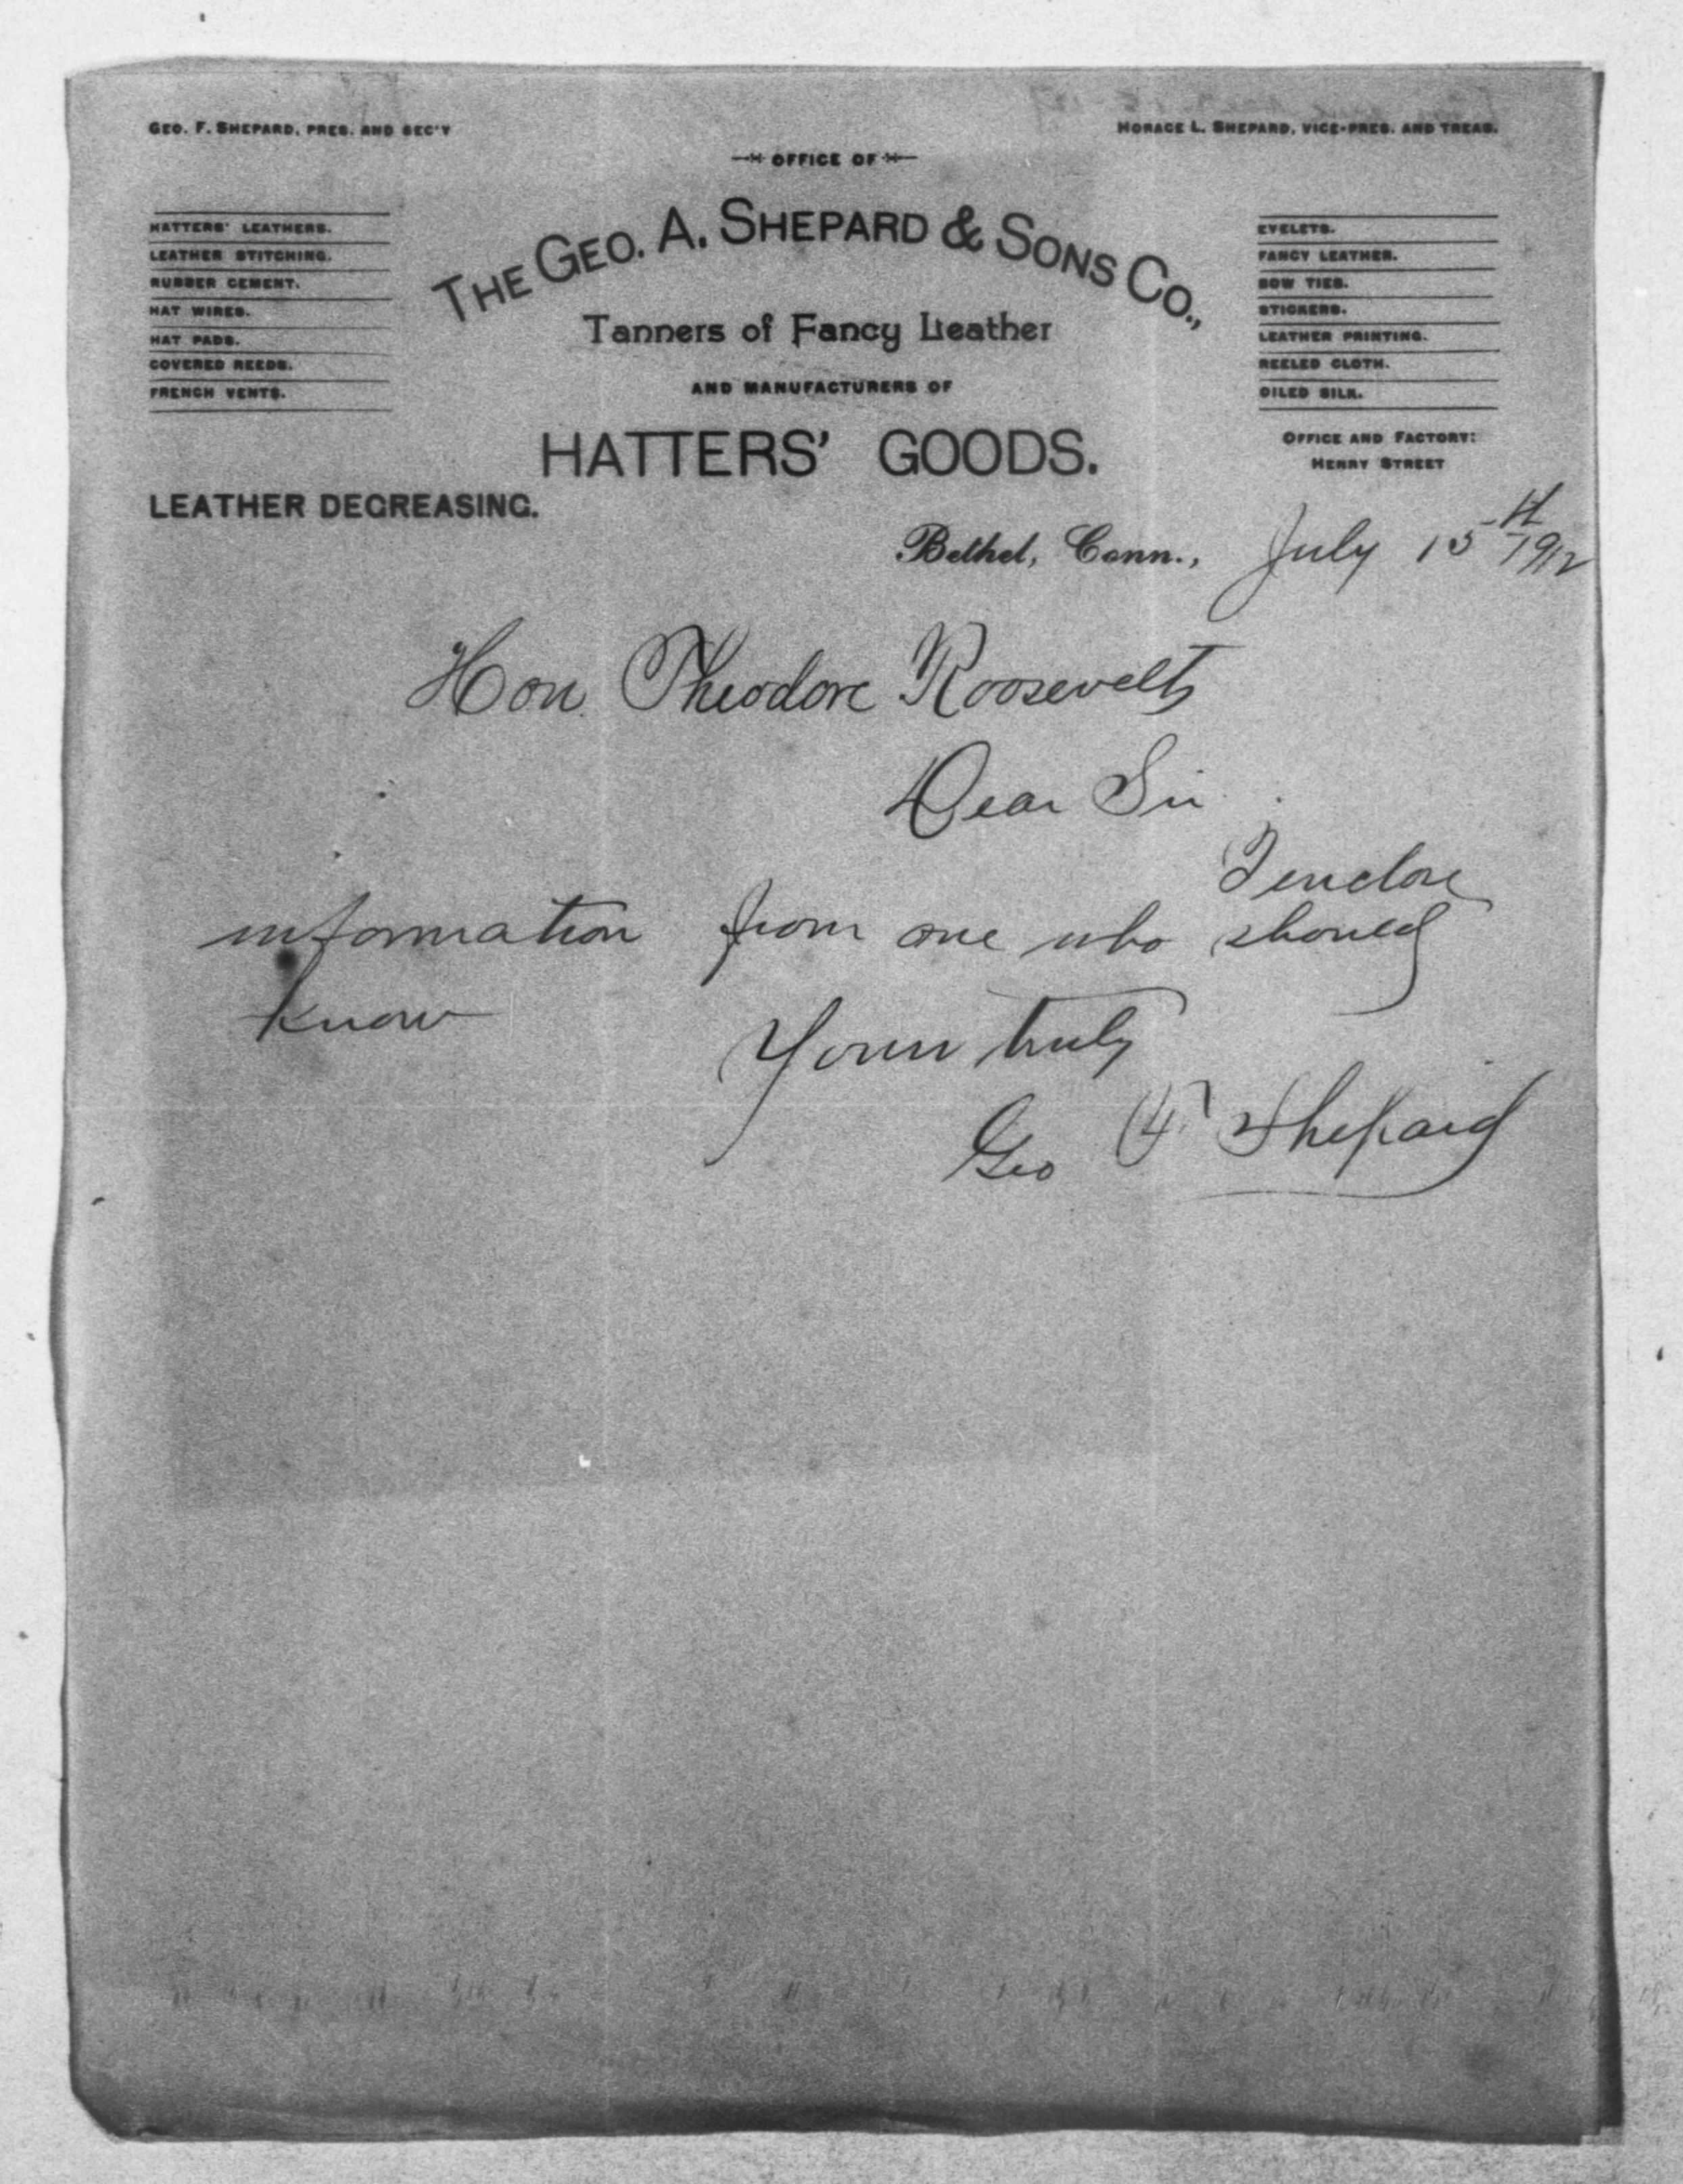 GEO. F. SHEPARD, PRES. AND SEC'Y
HORACE L. SHEPARD, VICE-PRES. AND TREAS.
OFFICE OF
THE GEO. A. SHEPARD & SONS CO.,
Tanners of Fancy Leather
AND MANUFACTURERS OF
HATTERS' GOODS.
HATTERS' LEATHERS.
LEATHER STITCHING.
RUBBER CEMENT.
HAT WIRES.
HAT PADS.
COVERED REEDS.
FRENCH VENTS.
EYELETS.
FANCY LEATHER.
BOW TIES.
STICKERS.
LEATHER PRINTING.
REELED CLOTH.
OILED SILK.
OFFICE AND FACTORY:
HENRY STREET
LEATHER DEGREASING.
Bethel, Conn., July 15th 1912
Hon. Theodore Roosevelt
Dear Sir
I enclose
information from one who should
know
Yours truly
Geo F. Shepard